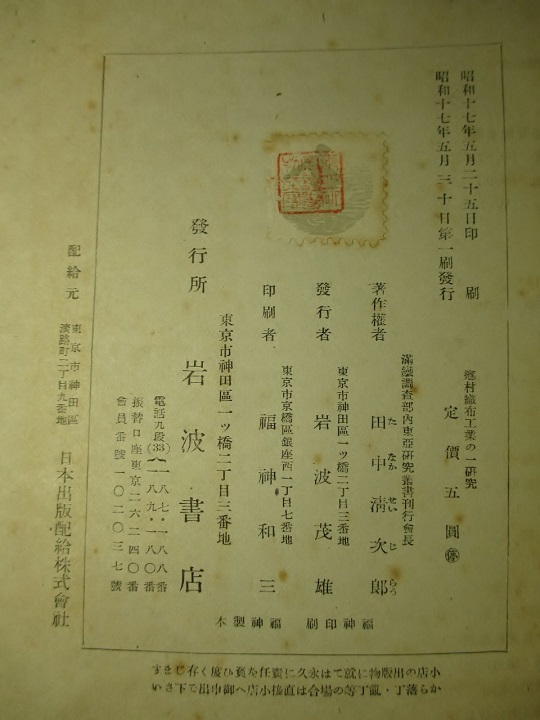 昭和十七年五月二十五日印刷
昭和十七年五月三十日第一刷發行
鄕村織布工業の一硏究
定價五圓
停
滿鐵調査部內東亞硏究叢書刊行會長
著作權者 田中淸次郞
たなかせいじらう
東京市神田區一ツ橋二丁目三番地
發行者 岩波茂雄
東京市京橋區銀座西一丁目七番地
印刷者 福神和三
東京市神田區一ツ橋二丁目三番地
發行所 岩波書店
電話九段(33)
一八七・一八八番
一八九・一八〇番
振替口座東京二六二四〇番
會員番號一〇二〇三七號
福神印刷 福神製本
配給元
東京市神田區
淡路町二丁目九番地
日本出版配給株式會社
小店の出版物に就ては永久に責任を負ひ度く存じます
から落丁・亂丁等の場合は直接小店へ御申出で下さい